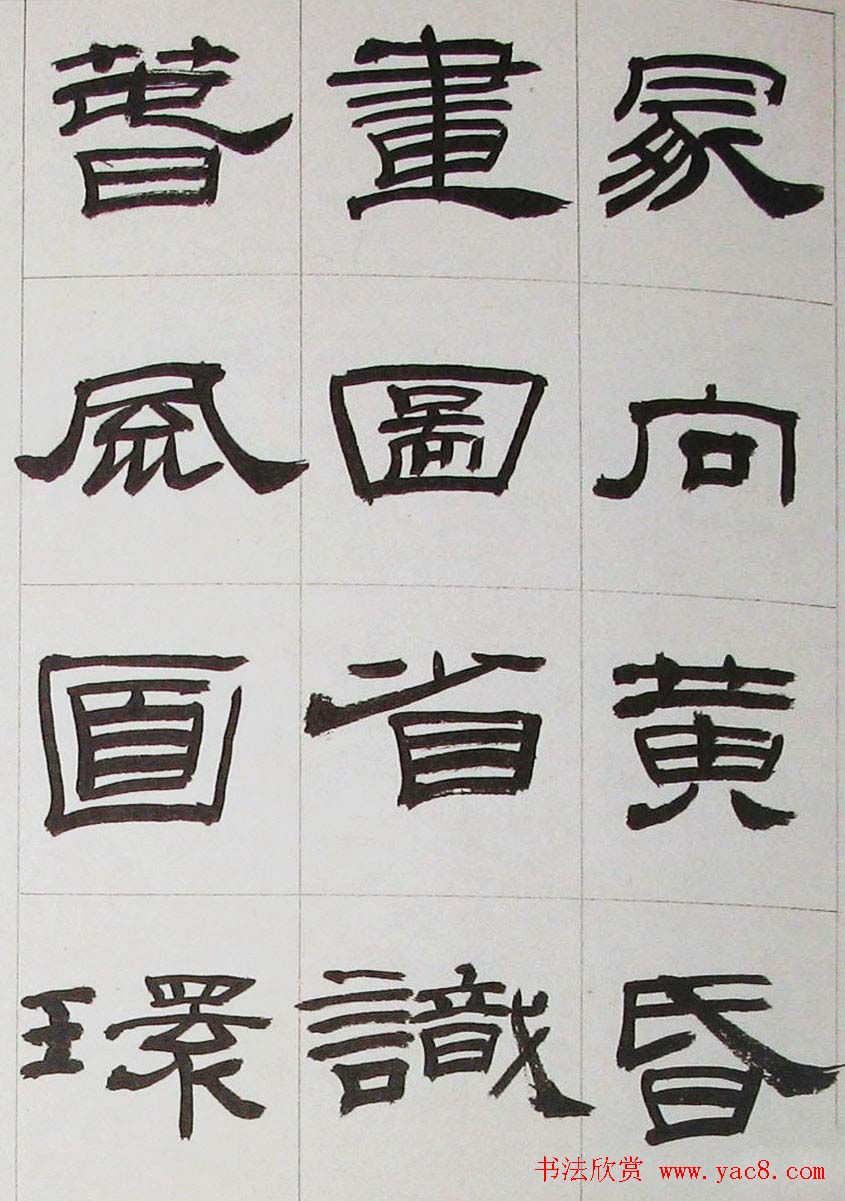 冢向黄昏
畫圖省識
春風面環
书法欣赏 www.yac8.com